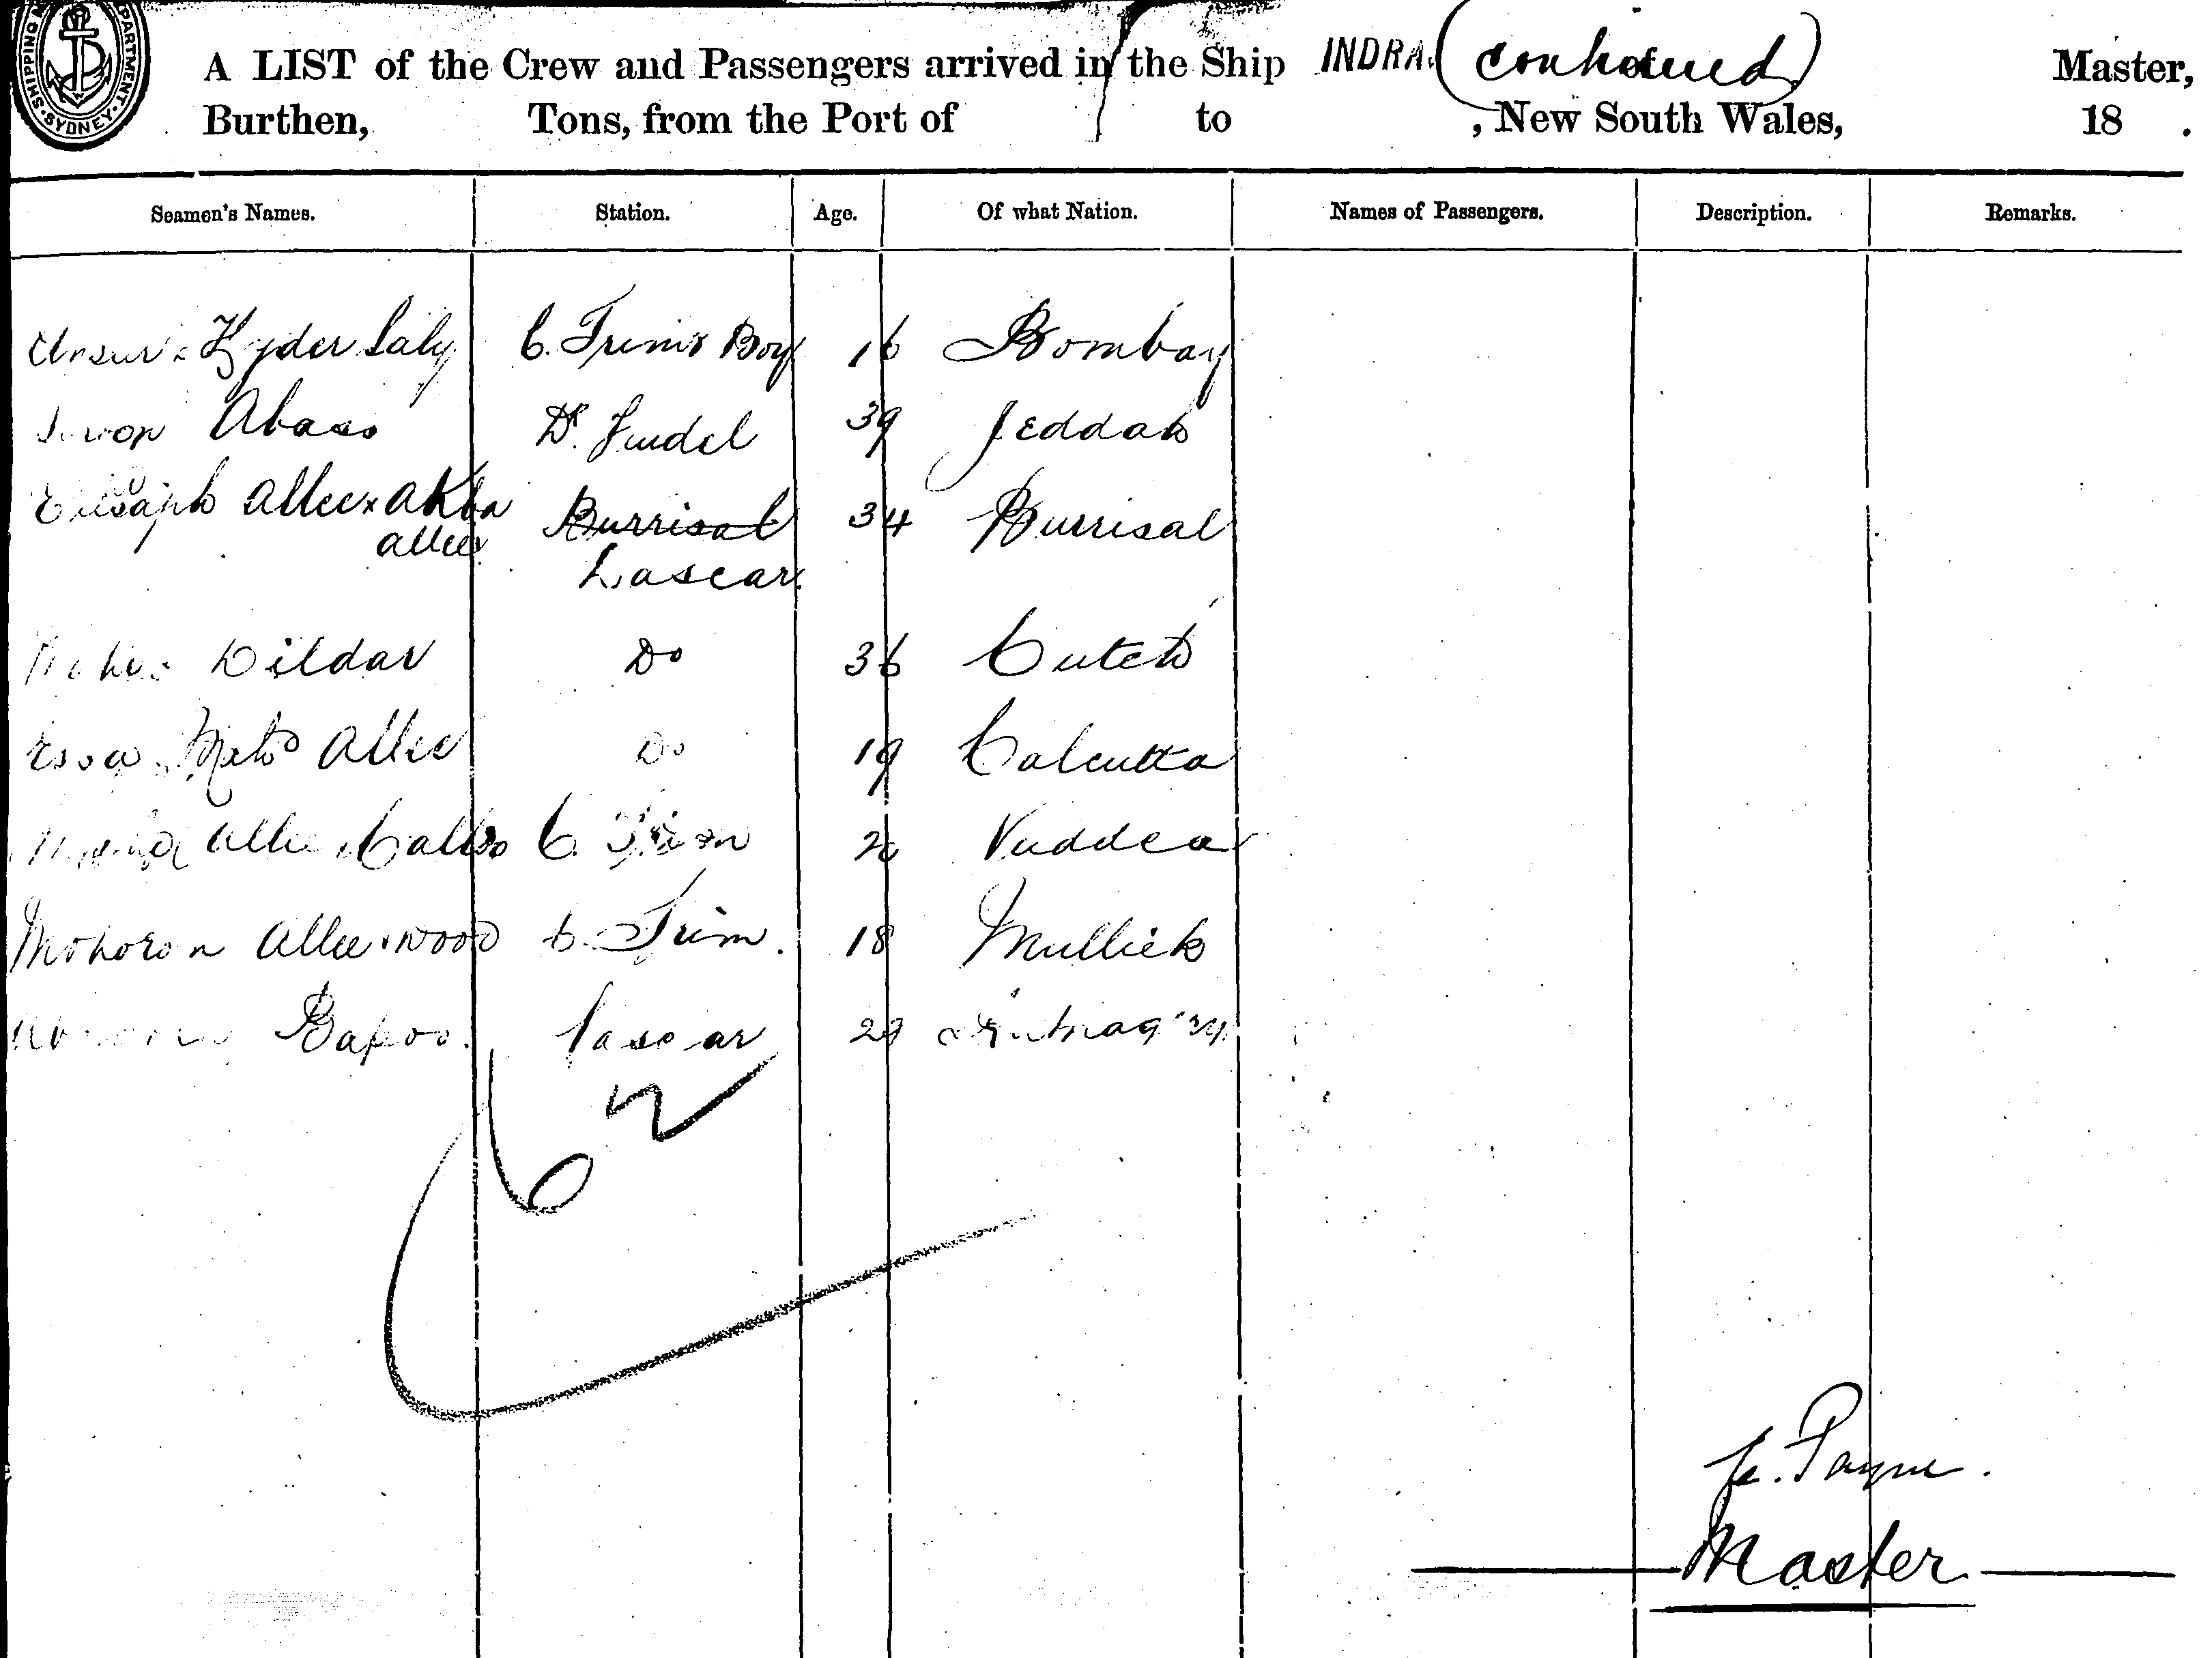 SHIPPING PARTMENT. SYDNEY.
A LIST of the Crew and Passengers arrived in the Ship INDRA. (continued) Master,
Burthen, Tons, from the Port of to , New South Wales, 18 .
Seamen's Names. Station. Age. Of what Nation. Names of Passengers. Description. Remarks.
Hyder Saly C. Trim's Boy 16 Bombay
Abaas 39 Jeddah
Allee x Akba 34 Burrisal
allee Burrisal
Lascar
Dildar Do 36 Cutch
Essa Allee Do 19 Calcutta
Allee C. Trim Nuddea
Mohoron Allee wood C. Trim. 18 Mullick
Bapoo. Lascar
62
Payne.
Master